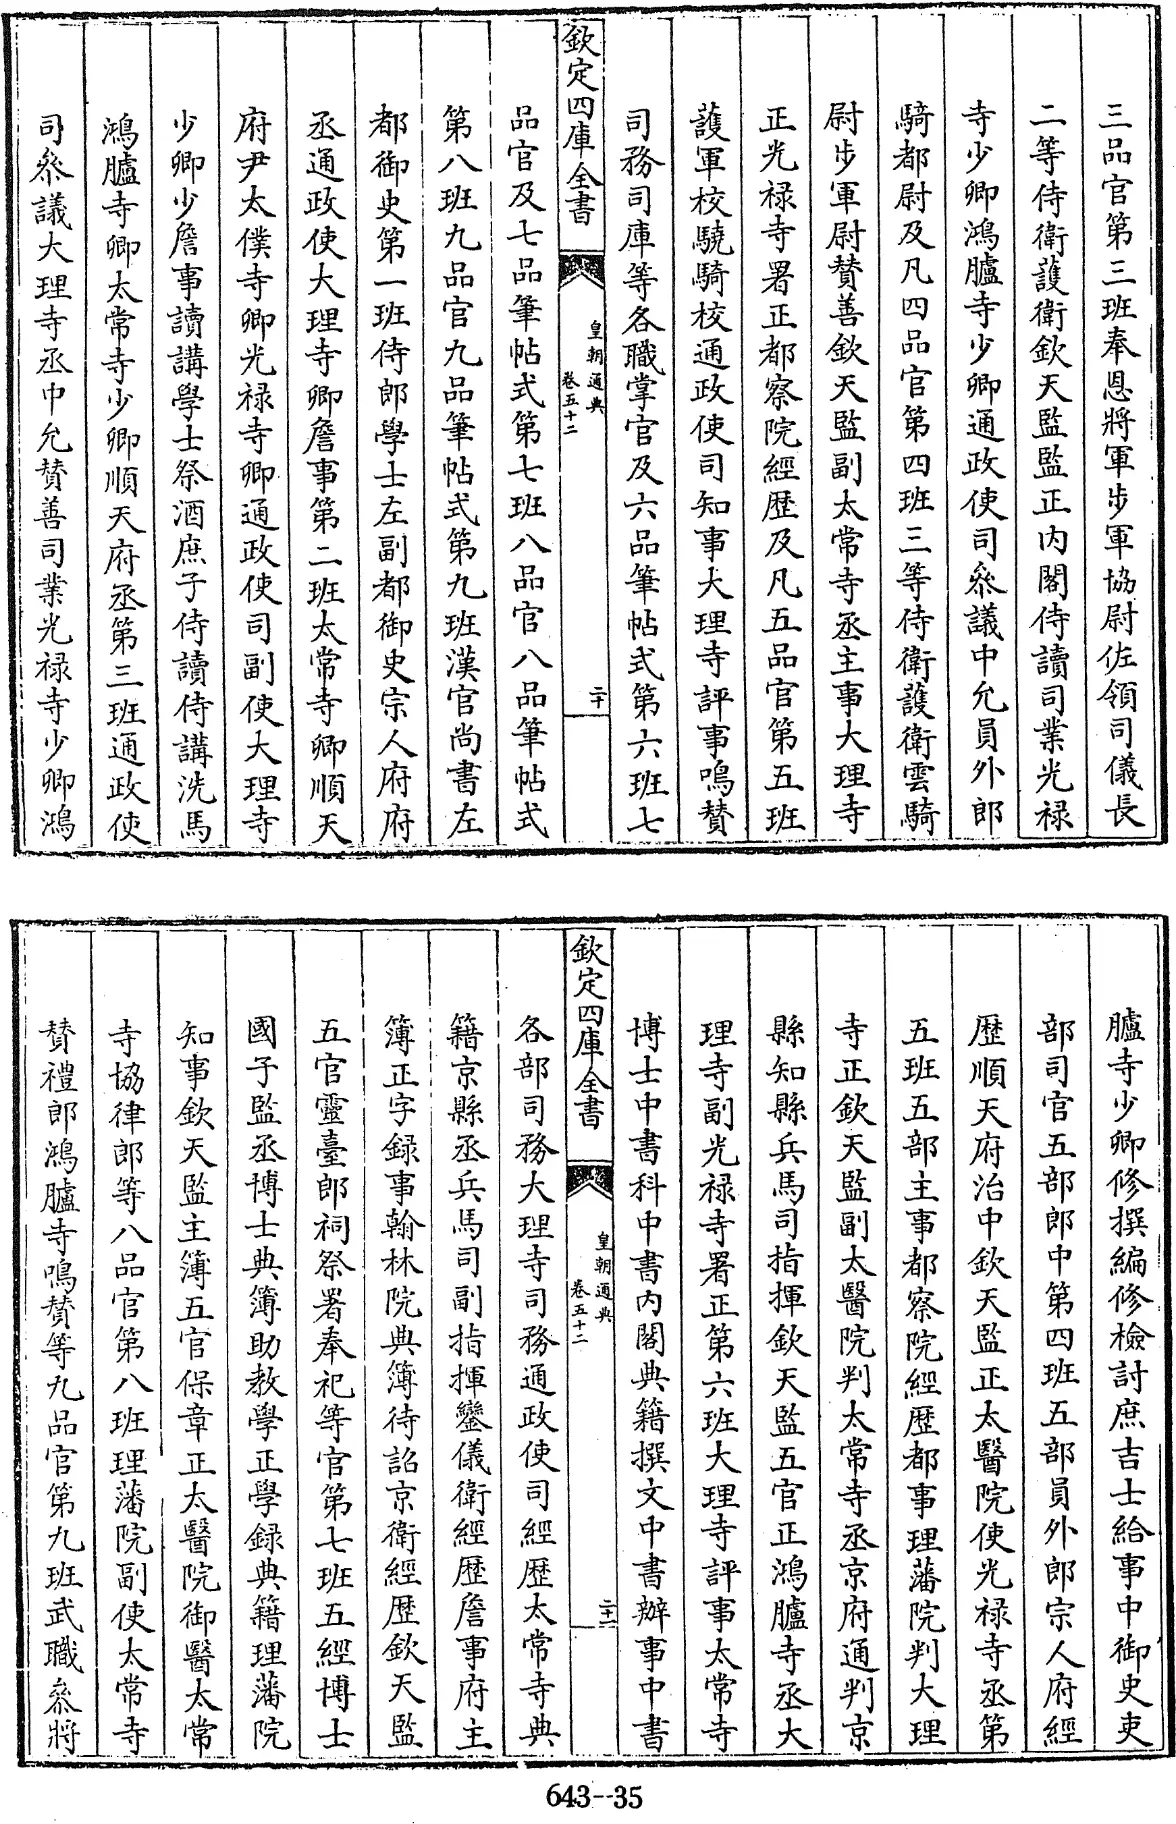 三品官第三班奉恩將軍步軍協尉佐領司儀長
二等侍衛護衛欽天監監正内閣侍讀司業光禄
寺少卿鴻臚寺少卿通政使司叅議中允員外郎
騎都尉及凡四品官第四班三等侍衛護衛雲騎
尉步軍尉賛善欽天監副太常寺丞主事大理寺
正光禄寺署正都察院經歴及凡五品官第五班
護軍校驍騎校通政使司知事大理寺評事鳴賛
司務司庫等各職掌官及六品筆帖式第六班七
欽定四庫全書
皇朝通典
卷五十二
二十
品官及七品筆帖式第七班八品官八品筆帖式
第八班九品官九品筆帖式第九班漢官尚書左
都御史第一班侍郎學士左副都御史宗人府府
丞通政使大理寺卿詹事第二班太常寺卿順天
府尹太僕寺卿光禄寺卿通政使司副使大理寺
少卿少詹事讀講學士祭酒庶子侍讀侍講洗馬
鴻臚寺卿太常寺少卿順天府丞第三班通政使
司叅議大理寺丞中允賛善司業光禄寺少卿鴻
臚寺少卿修撰編修檢討庶吉士給事中御史吏
部司官五部郎中第四班五部員外郎宗人府經
歴順天府治中欽天監正太醫院使光禄寺丞第
五班五部主事都察院經歴都事理藩院判大理
寺正欽天監副太醫院判太常寺丞京府通判京
縣知縣兵馬司指揮欽天監五官正鴻臚寺丞大
理寺副光禄寺署正第六班大理寺評事太常寺
博士中書科中書内閣典籍撰文中書辦事中書
欽定四庫全書
皇朝通典
卷五十二
二十一
各部司務大理寺司務通政使司經歴太常寺典
籍京縣丞兵馬司副指揮鑾儀衛經歴詹事府主
簿正字録事翰林院典簿待詔京衛經歴欽天監
五官靈臺郎祠祭署奉祀等官第七班五經博士
國子監丞博士典簿助教學正學録典籍理藩院
知事欽天監主簿五官保章正太醫院御醫太常
寺協律郎等八品官第八班理藩院副使太常寺
賛禮郎鴻臚寺鳴賛等九品官第九班武職叅將
643--35